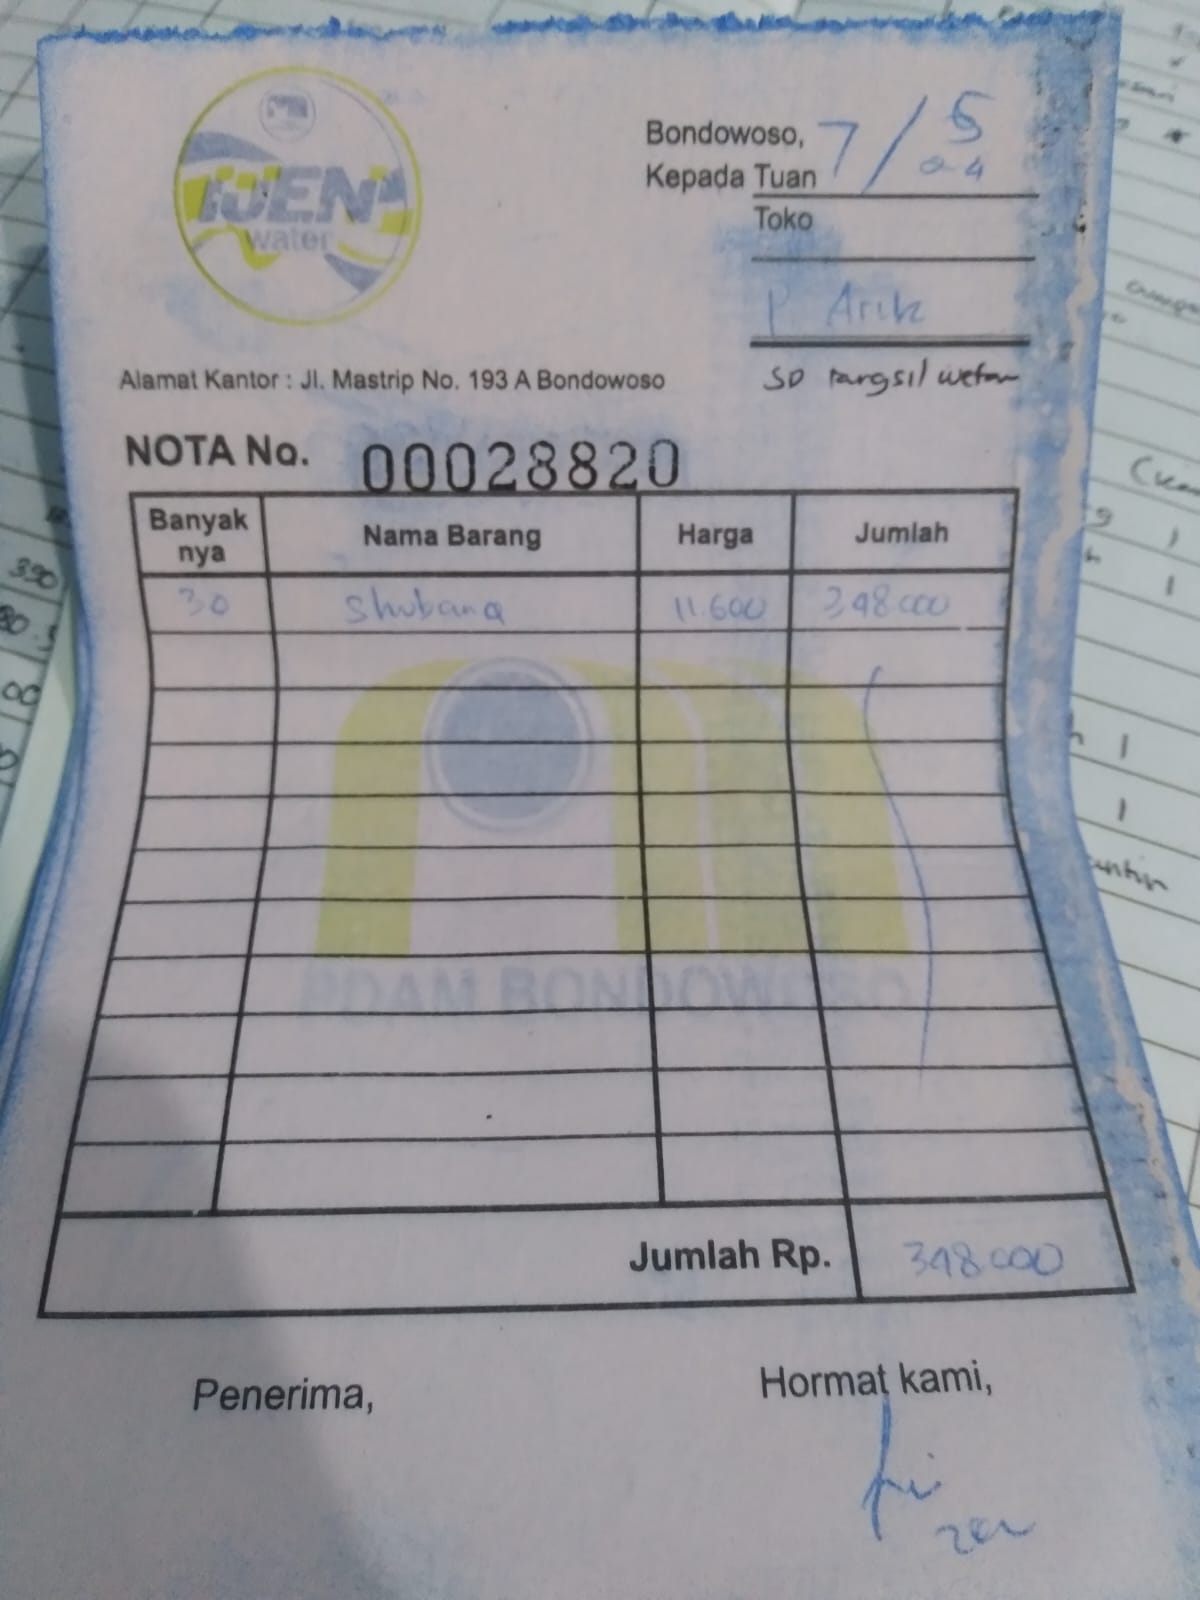 IJEN
water
Bondowoso, 7/5 24
Kepada Tuan
Toko
P Arik
SD tangsil wetan
Alamat Kantor : Jl. Mastrip No. 193 A Bondowoso
NOTA No. 00028820
Banyak nya Nama Barang Harga Jumlah
30 Shubana 11.600 348.000
PDAM BONDOWOSO
Jumlah Rp. 348.000
Penerima, Hormat kami,